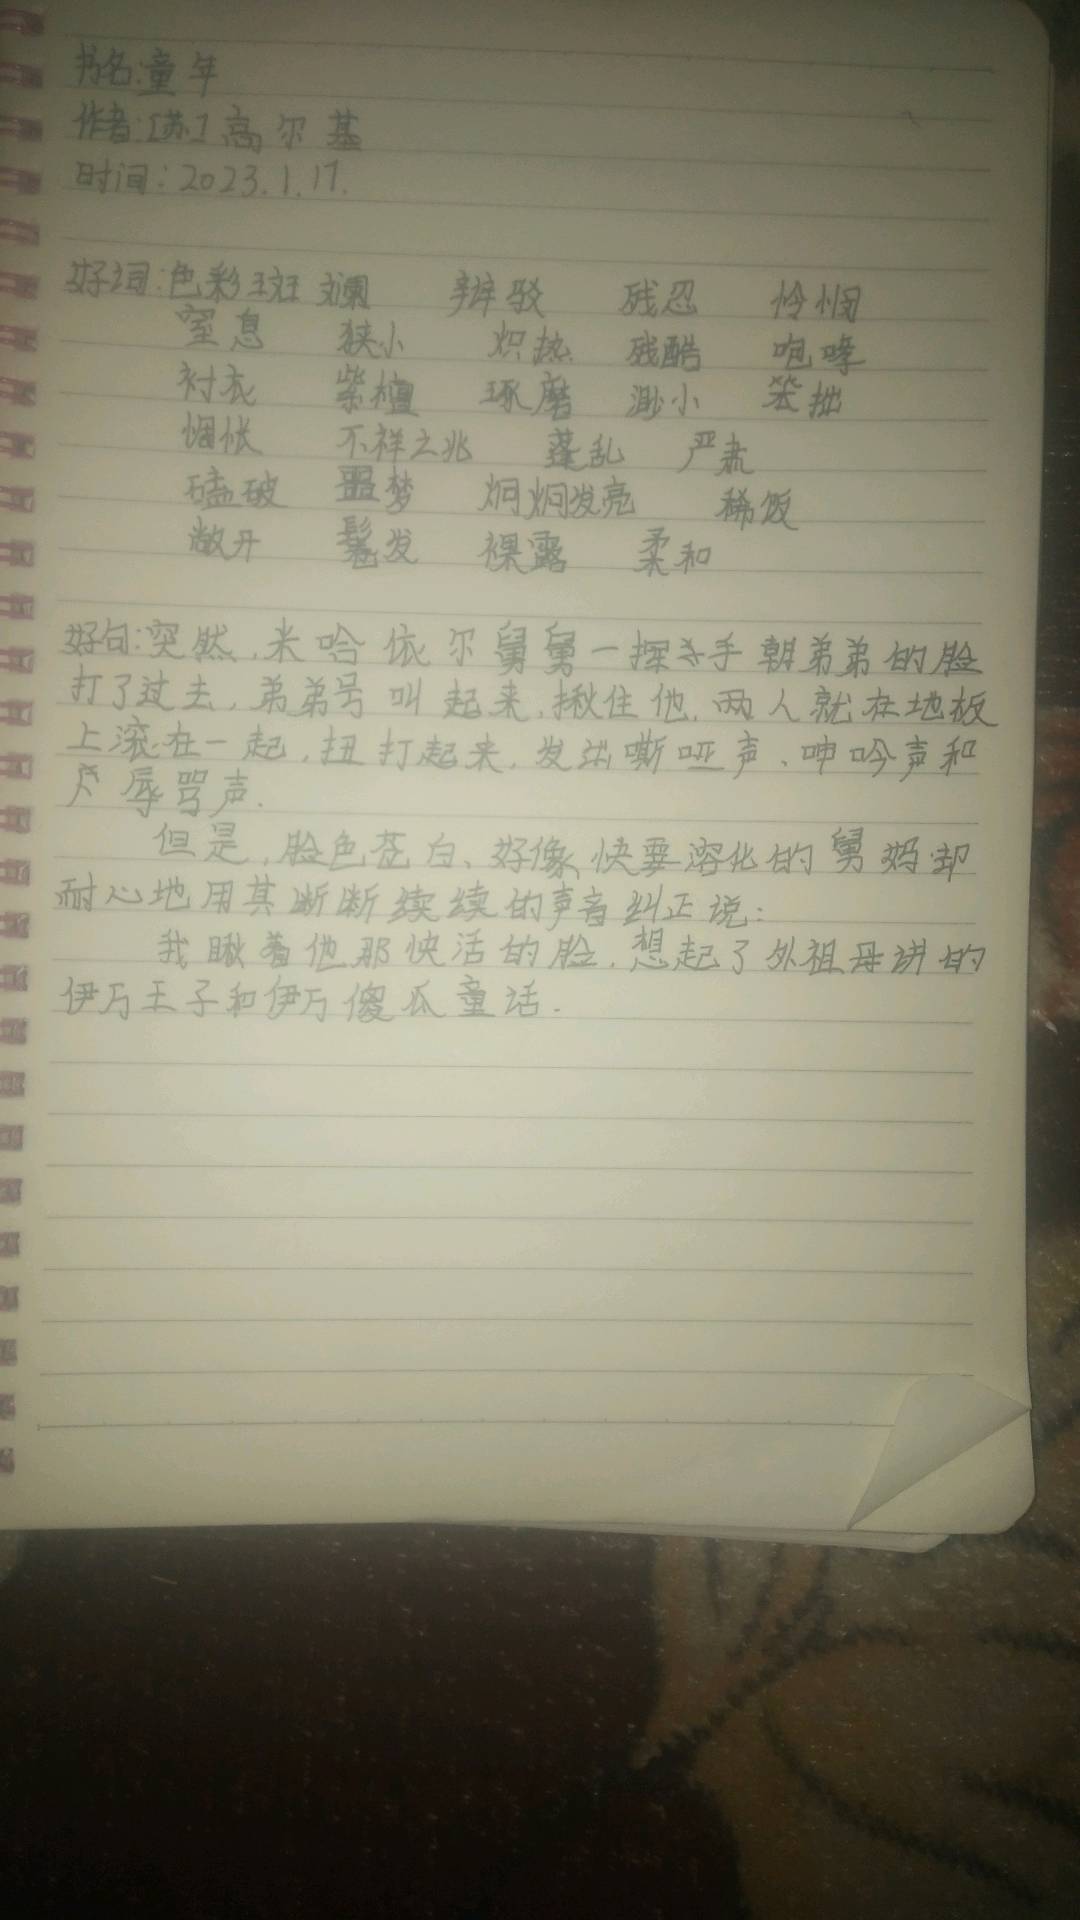 书名:童年
作者:[苏]高尔基
时间:2023.1.17.
好词:色彩斑斓 辩驳 残忍 怜悯
窒息 狭小 炽热 残酷 咆哮
衬衣 紫檀 琢磨 渺小 笨拙
惆怅 不祥之兆 蓬乱 严肃
磕破 噩梦 炯炯发亮 稀饭
敞开 鬈发 裸露 柔和
好句:突然,米哈依尔舅舅一挥手朝弟弟的脸
打了过去,弟弟号叫起来,揪住他,两人就在地板
上滚在一起,扭打起来,发出嘶哑声、呻吟声和
辱骂声.
但是,脸色苍白、好像快要溶化的舅妈却
耐心地用其断断续续的声音纠正说:
我瞅着他那快活的脸,想起了外祖母讲的
伊万王子和伊万傻瓜童话.